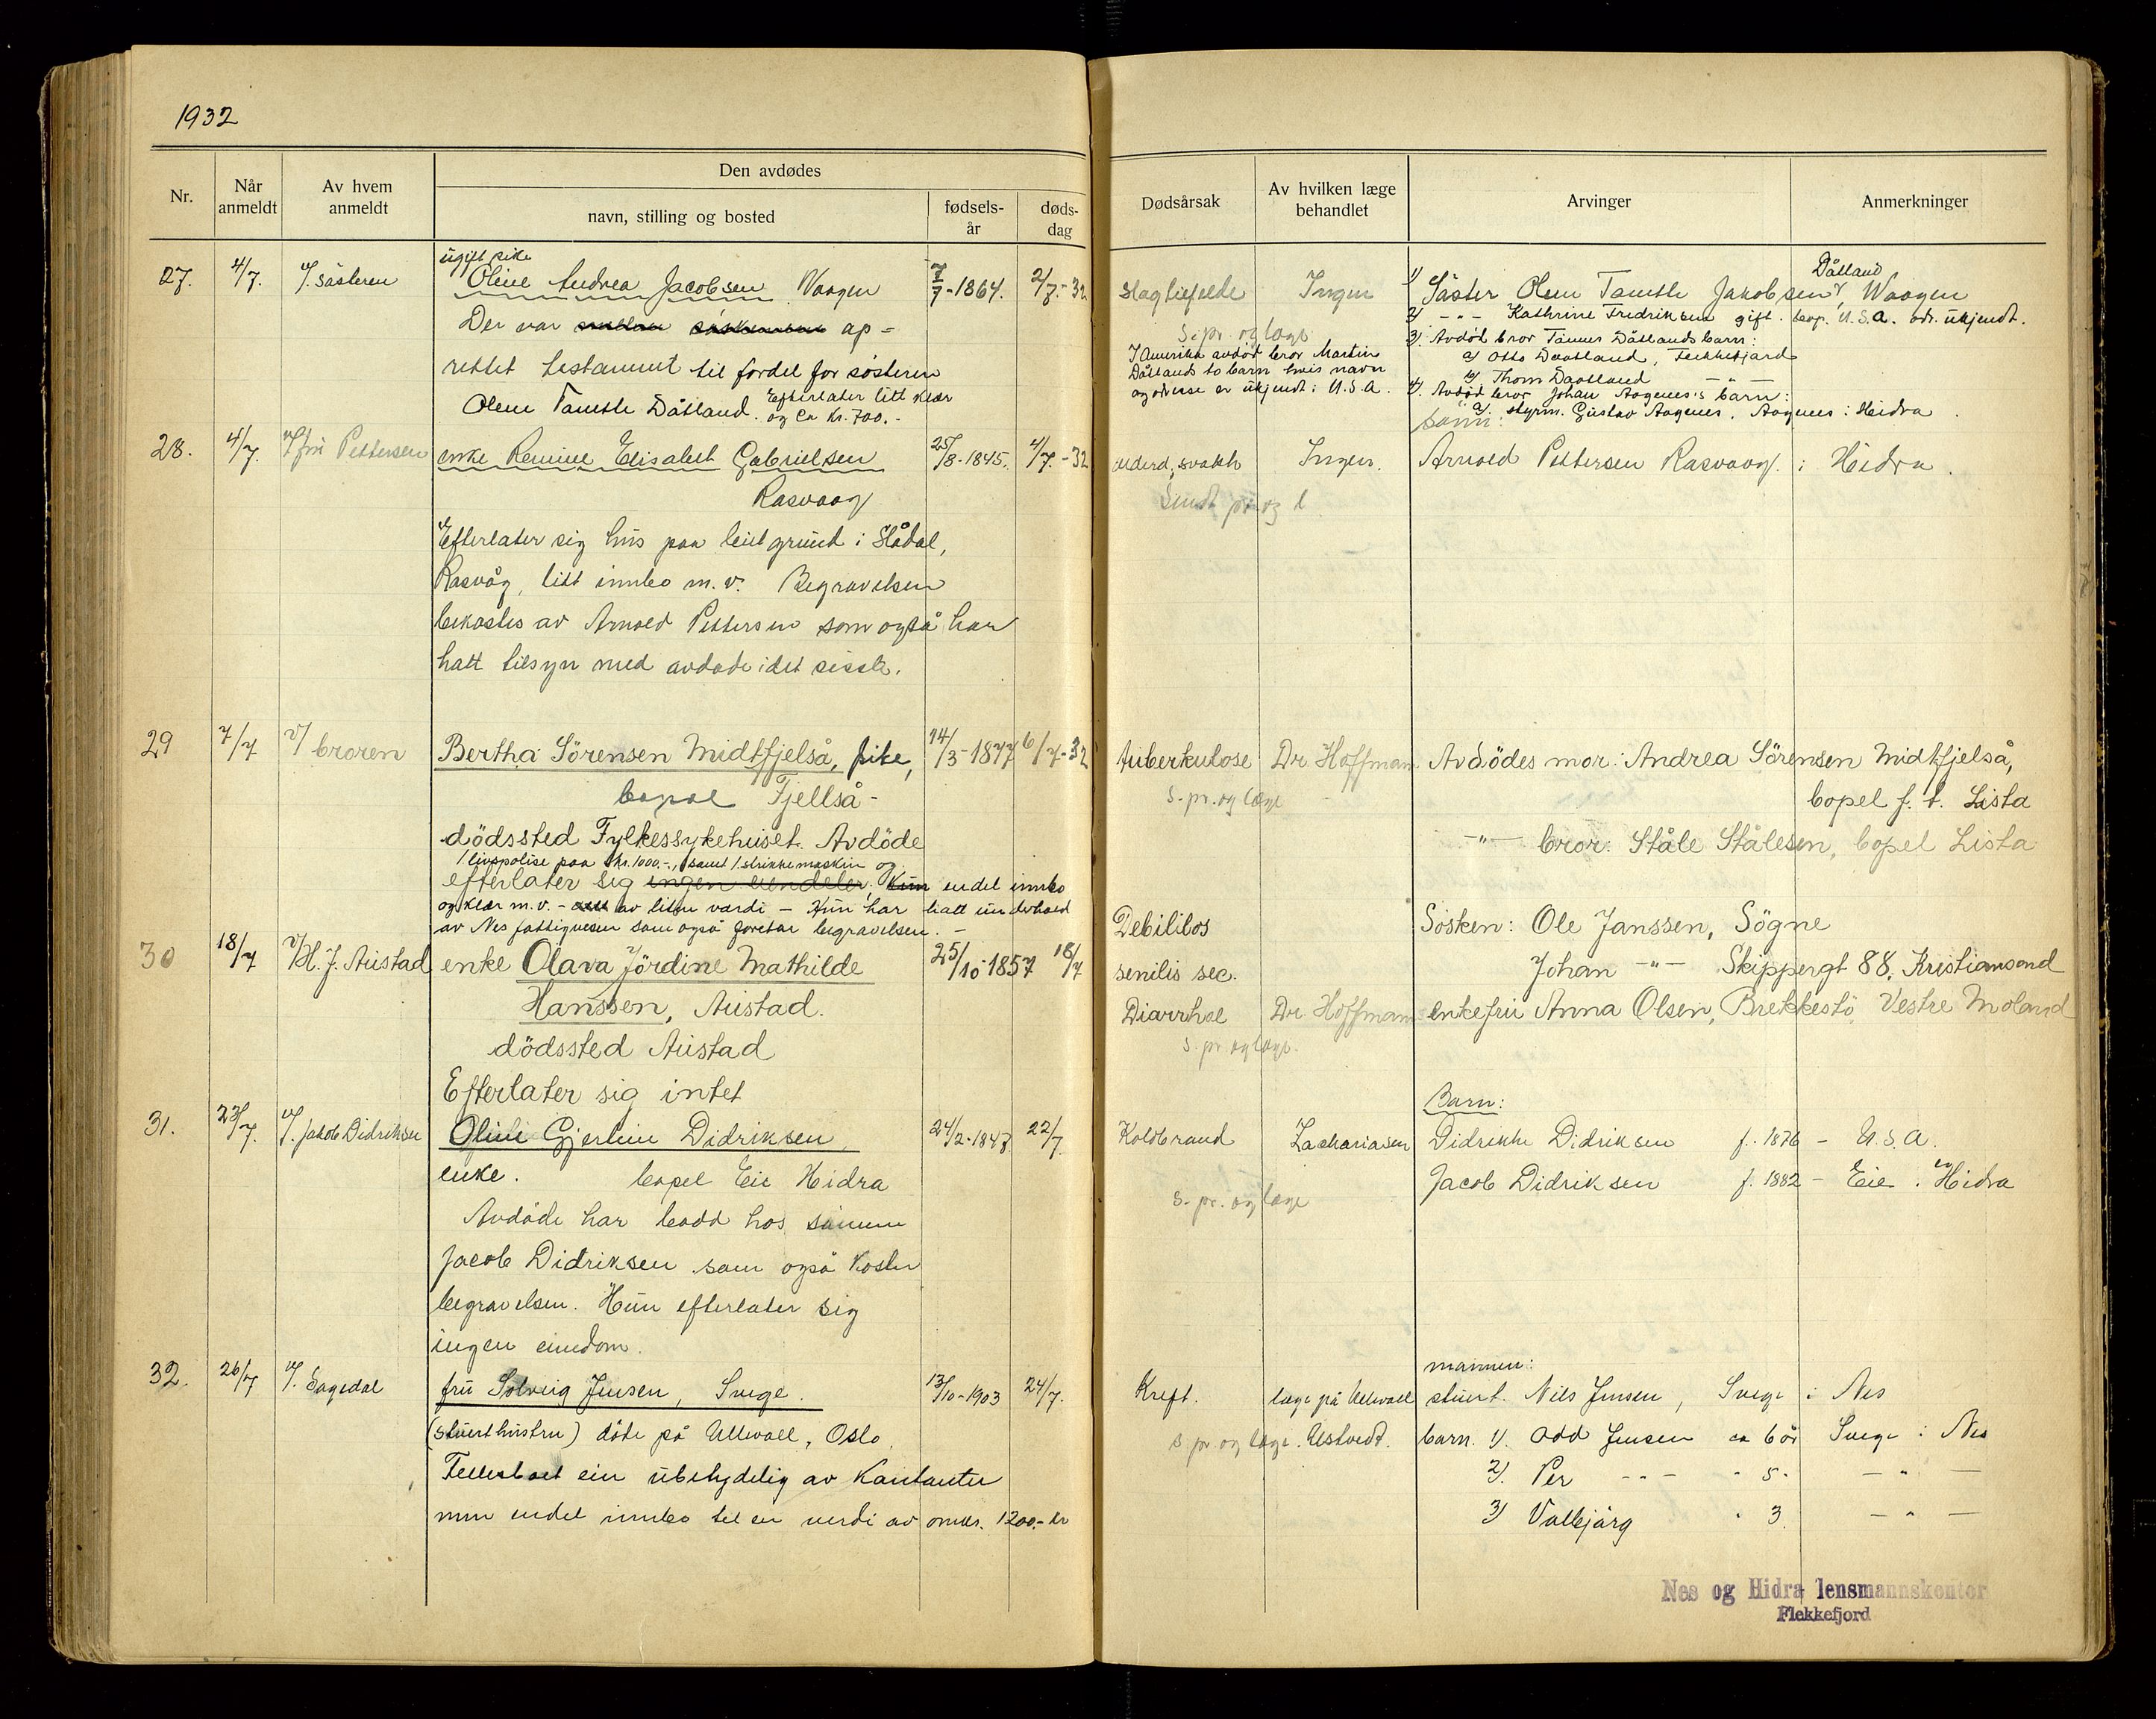 1932
Nr.
Når anmeldt
Av hvem anmeldt
Den avdødes
navn, stilling og bosted
fødsels-år
døds-dag
Dødsårsak
Av hvilken læge behandlet
Arvinger
Anmerkninger
27. 4/7. v/. søsteren
ugift pike
Oline Andrea Jacobsen Vaagen 7/7-1864. 2/7.-32
Der var mellem søskennene op-
rettet testament til fordel for søsteren
Olene Tamelle Dåtland. Efterlater litt klær
og ca kr. 700.-
Slagtilfelde Ingen
S. pr. og læge
I Amerika avdød bror Martin
Dåtlands to barn hvis navn
og adresse er ukjendt i U.S.A.
1) Søster Olene Tamelle Jakobsen Dåtland, Waagen
2) -"- Kathrine Fredriksen gift. bop. U.S.A. adr. ukjendt.
3) Avdød bror Tønnes Dåtlands barn:
a) Otto Daatland, Flekkefjord
b) Thom Daatland -"-
4). Avdød bror Johan Aagenes's barn:
a). styrm. Gustav Aagenes, Aagenes i Hidra.
28. 4/7. v/ fru Pettersen
enke Remine Elisabet Gabrielsen 25/8-1845. 4/7.-32
Rasvaag
Efterlater sig hus paa leiet grund i Slådal,
Rasvåg, litt innbo m.v. Begravelsen
bekostes av Arnold Pettersen som også har
hatt tilsyn med avdøde i det siste.
alderd.svakh Ingen.
Sendt pr. og l
sønn:
Arnold Pettersen Rasvaag i Hidra.
29 7/7 v/ broren
Bertha Sörensen Midtfjelså, pike, 14/3-1877 6/7-32
bopæl Fjellså-
dödssted Fylkessykehuset. Avdöde
1 livspolise paa kr. 1000.-, samt 1 strikkemaskin og
efterlater sig ingen eiendeler, kun endel innbo
og klær m.v. - alt av liten værdi - Hun har hatt underhold
av Nes fattigvesen som også foretar begravelsen. -
tuberkulose Dr. Hoffman
S.-pr. og læge
Avdödes mor: Andrea Sörensen Midtfjelså,
bopel f. t. Lista
-"- bror: Ståle Stålesen, bopel Lista
30 18/7 v/ H. J. Austad
enke Olava Jördine Mathilde 25/10-1857 18/7
Hanssen, Austad.
dödssted Austad
Efterlater sig intet
Debilitas
senilis sec.
Diarrhoe Dr. Hoffmann
S. pr. og læge.
Sösken: Ole Janssen, Sögne
Johan -"- Skippergt 88, Kristiansand
enkefru Anna Olsen, Brekkestö, Vestre Moland
31. 23/7. v/. Jakob Didriksen
Oline Gjerline Didriksen, 24/2-1847 22/7.
enke. bopel Eie Hidra
Avdøde har bodd hos sønnen
Jacob Didriksen som også koster
begravelsen. Hun efterlater sig
ingen eiendom.
Koldbrand Zachariasen
S.-pr. og læge
Barn:
Didrikke Didriksen f. 1876 - U.S.A.
Jacob Didriksen f. 1882 - Eie i Hidra
32. 26/7 v/. Sagedal
fru Solveig Jensen, Svege. 13/10-1903 24/7.
(stuerthustru) døde på Ullevall, Oslo.
Fellesboet eier ubetydelig av kontanter
men endel innbo til en verdi av omkr. 1200.- kr
Kreft. læge på Ullevall
S. pr. og læge. Ustvedt.
mannen:
stuert. Nils Jensen, Svege i Nes
barn. 1). Odd Jensen ca 6 år Svege i Nes
2). Per -"- " 5. -"-
3) Valbjørg " 3. -"-
Nes og Hidra lensmannskontor
Flekkefjord